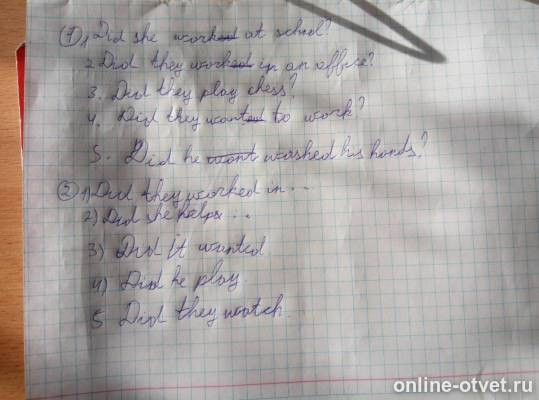 1) 1, Did she worked at school?
2. Did they worked in an office?
3. Did they play chess?
4. Did they wanted to work?
5. Did he want washed his hands?
2) 1) Did they worked in...
2) Did she helps...
3) Did it wanted
4) Did he play
5 Did they watch
online-otvet.ru